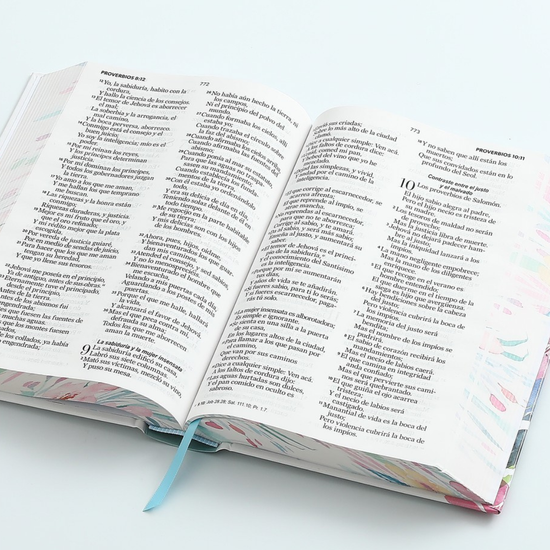 PROVERBIOS 8:12
772
12 Yo, la sabiduría, habito con la
cordura,
Y hallo la ciencia de los consejos.
13 El temor de Jehová es aborrecer
el mal;
La soberbia y la arrogancia, el
mal camino,
Y la boca perversa, aborrezco.
14 Conmigo está el consejo y el
buen juicio;
Yo soy la inteligencia; mío es el
poder.
15 Por mí reinan los reyes,
Y los príncipes determinan
justicia.
16 Por mí dominan los príncipes,
Y todos los gobernadores juzgan
la tierra.
17 Yo amo a los que me aman,
Y me hallan los que temprano
me buscan.
18 Las riquezas y la honra están
conmigo;
Riquezas duraderas, y justicia.
19 Mejor es mi fruto que el oro, y
que el oro refinado;
Y mi rédito mejor que la plata
escogida.
20 Por vereda de justicia guiaré,
Por en medio de sendas de juicio,
21 Para hacer que los que me aman
tengan su heredad,
Y que yo llene sus tesoros.
22 Jehová me poseía en el principio,
Ya de antiguo, antes de sus obras.
Eternamente tuve el principado,
desde el principio,
de la tierra.
antes de los abismos fui
engendrada;
que fuesen las fuentes de
las muchas aguas.
que los montes fuesen
formados,
de los collados, ya había
sido engendrada;
26 No había aún hecho la tierra, ni
los campos,
Ni el principio del polvo del
mundo.
27 Cuando formaba los cielos, allí
estaba yo;
Cuando trazaba el círculo sobre
la faz del abismo;
28 Cuando afirmaba los cielos arriba,
Cuando afirmaba las fuentes del
abismo;
29 Cuando ponía al mar su estatuto,
Para que las aguas no traspasasen
su mandamiento;
Cuando establecía los
fundamentos de la tierra,
30 Con él estaba yo ordenándolo
todo,
Y era su delicia de día en día,
Teniendo solaz delante de él en
todo tiempo.
31 Me regocijo en la parte habitable
de su tierra;
Y mis delicias son con los hijos
de los hombres.
32 Ahora, pues, hijos, oídme,
Y bienaventurados los que
guardan mis caminos.
33 Atended el consejo, y sed sabios,
Y no lo menospreciéis.
34 Bienaventurado el hombre que
me escucha,
Velando a mis puertas cada día,
Aguardando a los postes de mis
puertas.
35 Porque el que me halle, hallará
la vida,
Y alcanzará el favor de Jehová.
36 Mas el que peca contra mí,
defrauda su alma;
Todos los que me aborrecen
aman la muerte.
La sabiduría y la mujer insensata
9 La sabiduría edificó su casa,
Labró sus siete columnas.
2 Mató sus víctimas, mezcló su vino,
Y puso su mesa.
773
PROVERBIOS 10:11
sus criadas;
Sobre lo más alto de la ciudad
cualquier simple: Ven acá.
faltos de cordura dice:
comed mi pan,
bebed del vino que yo he
mezclado.
Dejad las simplezas, y vivid,
andad por el camino de la
inteligencia.
corrige al escarnecedor, se
afrenta;
que reprende al impío, se
mancha.
reprendas al escarnecedor,
para que no te aborrezca;
Corrige al sabio, y te amará.
al sabio, y será más sabio;
al justo, y aumentará su
saber.
temor de Jehová es el principio
de la sabiduría,
el conocimiento del Santísimo
es la inteligencia.
Porque por mí se aumentarán
tus días,
Y años de vida se te añadirán.
Si fueres sabio, para ti lo serás;
Y si fueres escarnecedor, pagarás
tú solo.
La mujer insensata es alborotadora;
Es simple e ignorante.
Se sienta en una silla a la puerta
de su casa,
En los lugares altos de la ciudad,
Para llamar a los que pasan por
el camino,
Que van por sus caminos
derechos.
Dice a cualquier simple: Ven acá.
A los faltos de cordura dijo:
Las aguas hurtadas son dulces,
Y el pan comido en oculto es
sabroso.
18 Y no saben que allí están los
muertos;
Que sus convidados están en lo
profundo del Seol.
Contraste entre el justo
y el malvado
10 Los proverbios de Salomón.
El hijo sabio alegra al padre,
Pero el hijo necio es tristeza de
su madre.
2 Los tesoros de maldad no serán
de provecho;
Mas la justicia libra de muerte.
3 Jehová no dejará padecer hambre
al justo;
Mas la iniquidad lanzará a los
impíos.
4 La mano negligente empobrece;
Mas la mano de los diligentes
enriquece.
5 El que recoge en el verano es
hombre entendido;
El que duerme en el tiempo de la
siega es hijo que avergüenza.
6 Hay bendiciones sobre la cabeza
del justo;
Pero violencia cubrirá la boca de
los impíos.
7 La memoria del justo será
bendita;
Mas el nombre de los impíos se
pudrirá.
8 El sabio de corazón recibirá los
mandamientos;
Mas el necio de labios caerá.
9 El que camina en integridad
anda confiado;
Mas el que pervierte sus caminos
será quebrantado.
10 El que guiña el ojo acarrea
tristeza;
Y el necio de labios será
castigado.
11 Manantial de vida es la boca del
justo;
Pero violencia cubrirá la boca de
los impíos.
a 9.10 Job 28.28; Sal. 111.10; Pr. 1.7.